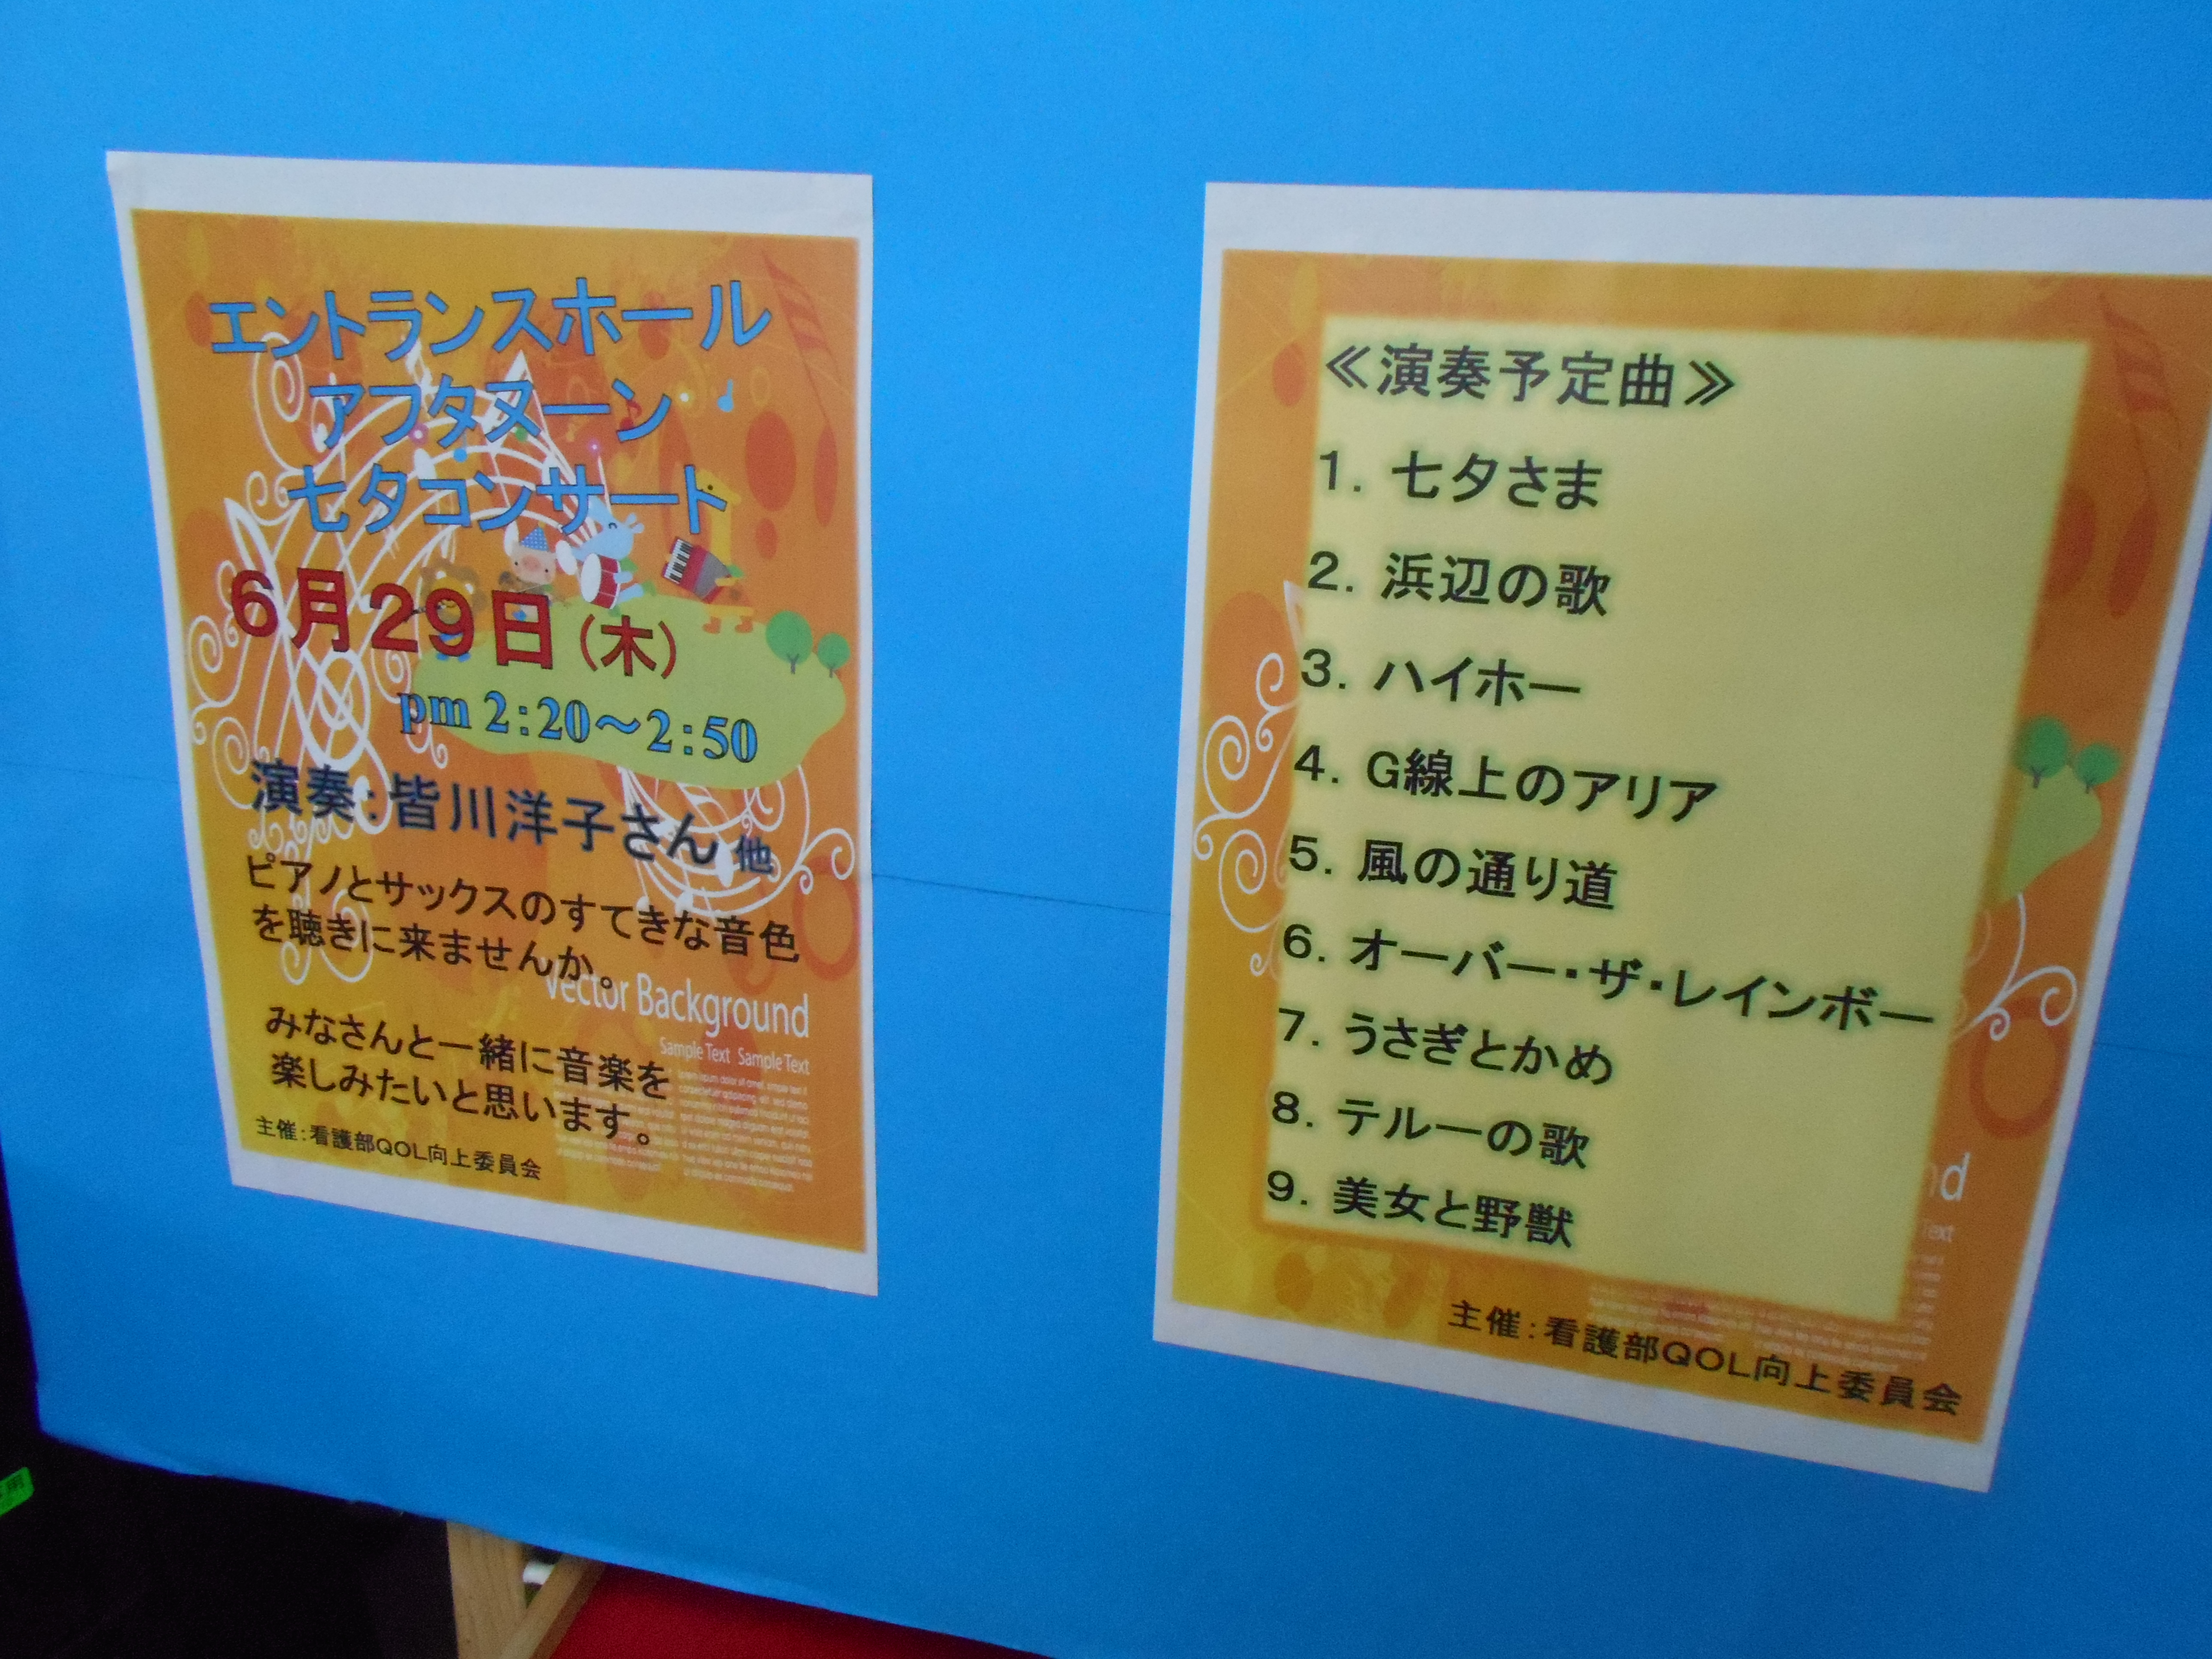 エントランスホール
アフタヌーン
七夕コンサート
6月29日（木）
pm 2:20～2:50
演奏：皆川洋子さん 他
ピアノとサックスのすてきな音色
を聴きに来ませんか。
Vector Background
Sample Text Sample Text
みなさんと一緒に音楽を
楽しみたいと思います。
主催：看護部QOL向上委員会
≪演奏予定曲≫
1. 七夕さま
2. 浜辺の歌
3. ハイホー
4. G線上のアリア
5. 風の通り道
6. オーバー・ザ・レインボー
7. うさぎとかめ
8. テルーの歌
9. 美女と野獣
nd
Text
主催：看護部QOL向上委員会